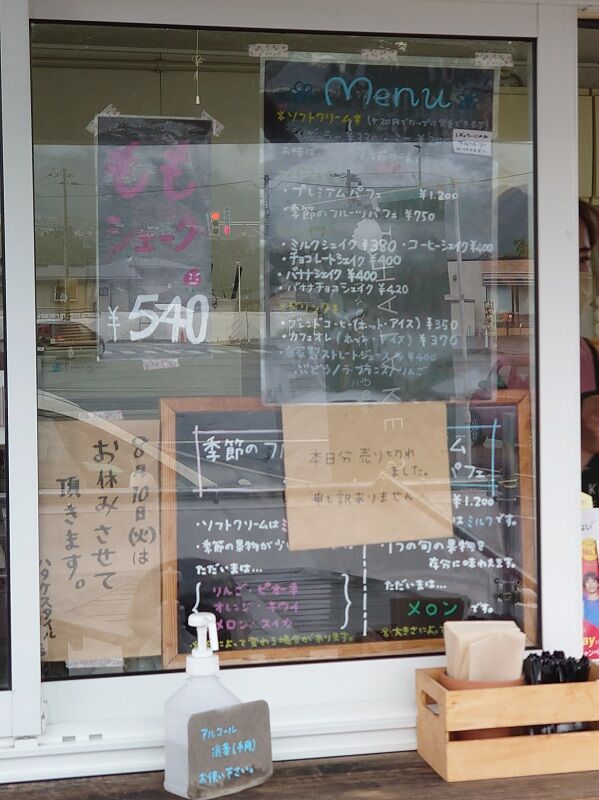 Menu
*ソフトクリーム*
・プレミアムパフェ ¥1.200
季節のフルーツパフェ ¥750
・ミルクシェイク ¥380 ・コーヒーシェイク ¥400
・チョコレートシェイク ¥400
・バナナシェイク ¥400
・バナナチョコシェイク ¥420
・ブレンドコーヒー(ホット・アイス) ¥350
・カフェオレ(ホット・アイス) ¥370
・自家製ストレートジュース各 ¥400
ももシェーク
¥540
8月10日(火)は
お休みさせて
頂きます。
ハタケスタイル
本日分、売り切れ
ました。
申し訳ありません。
季節のフル
・ソフトクリームはミ
・季節の果物が少
ただいまは…
りんご・ピオーネ
オレンジ・キウイ
メロン・スイカ
によって変わる場合があります。
ム
パフェ
¥1.200
はミルクです。
・1つの旬の果物を
存分に味わえます。
ただいまは…
メロン です。
アルコール
消毒(手用)
お使い下さい。